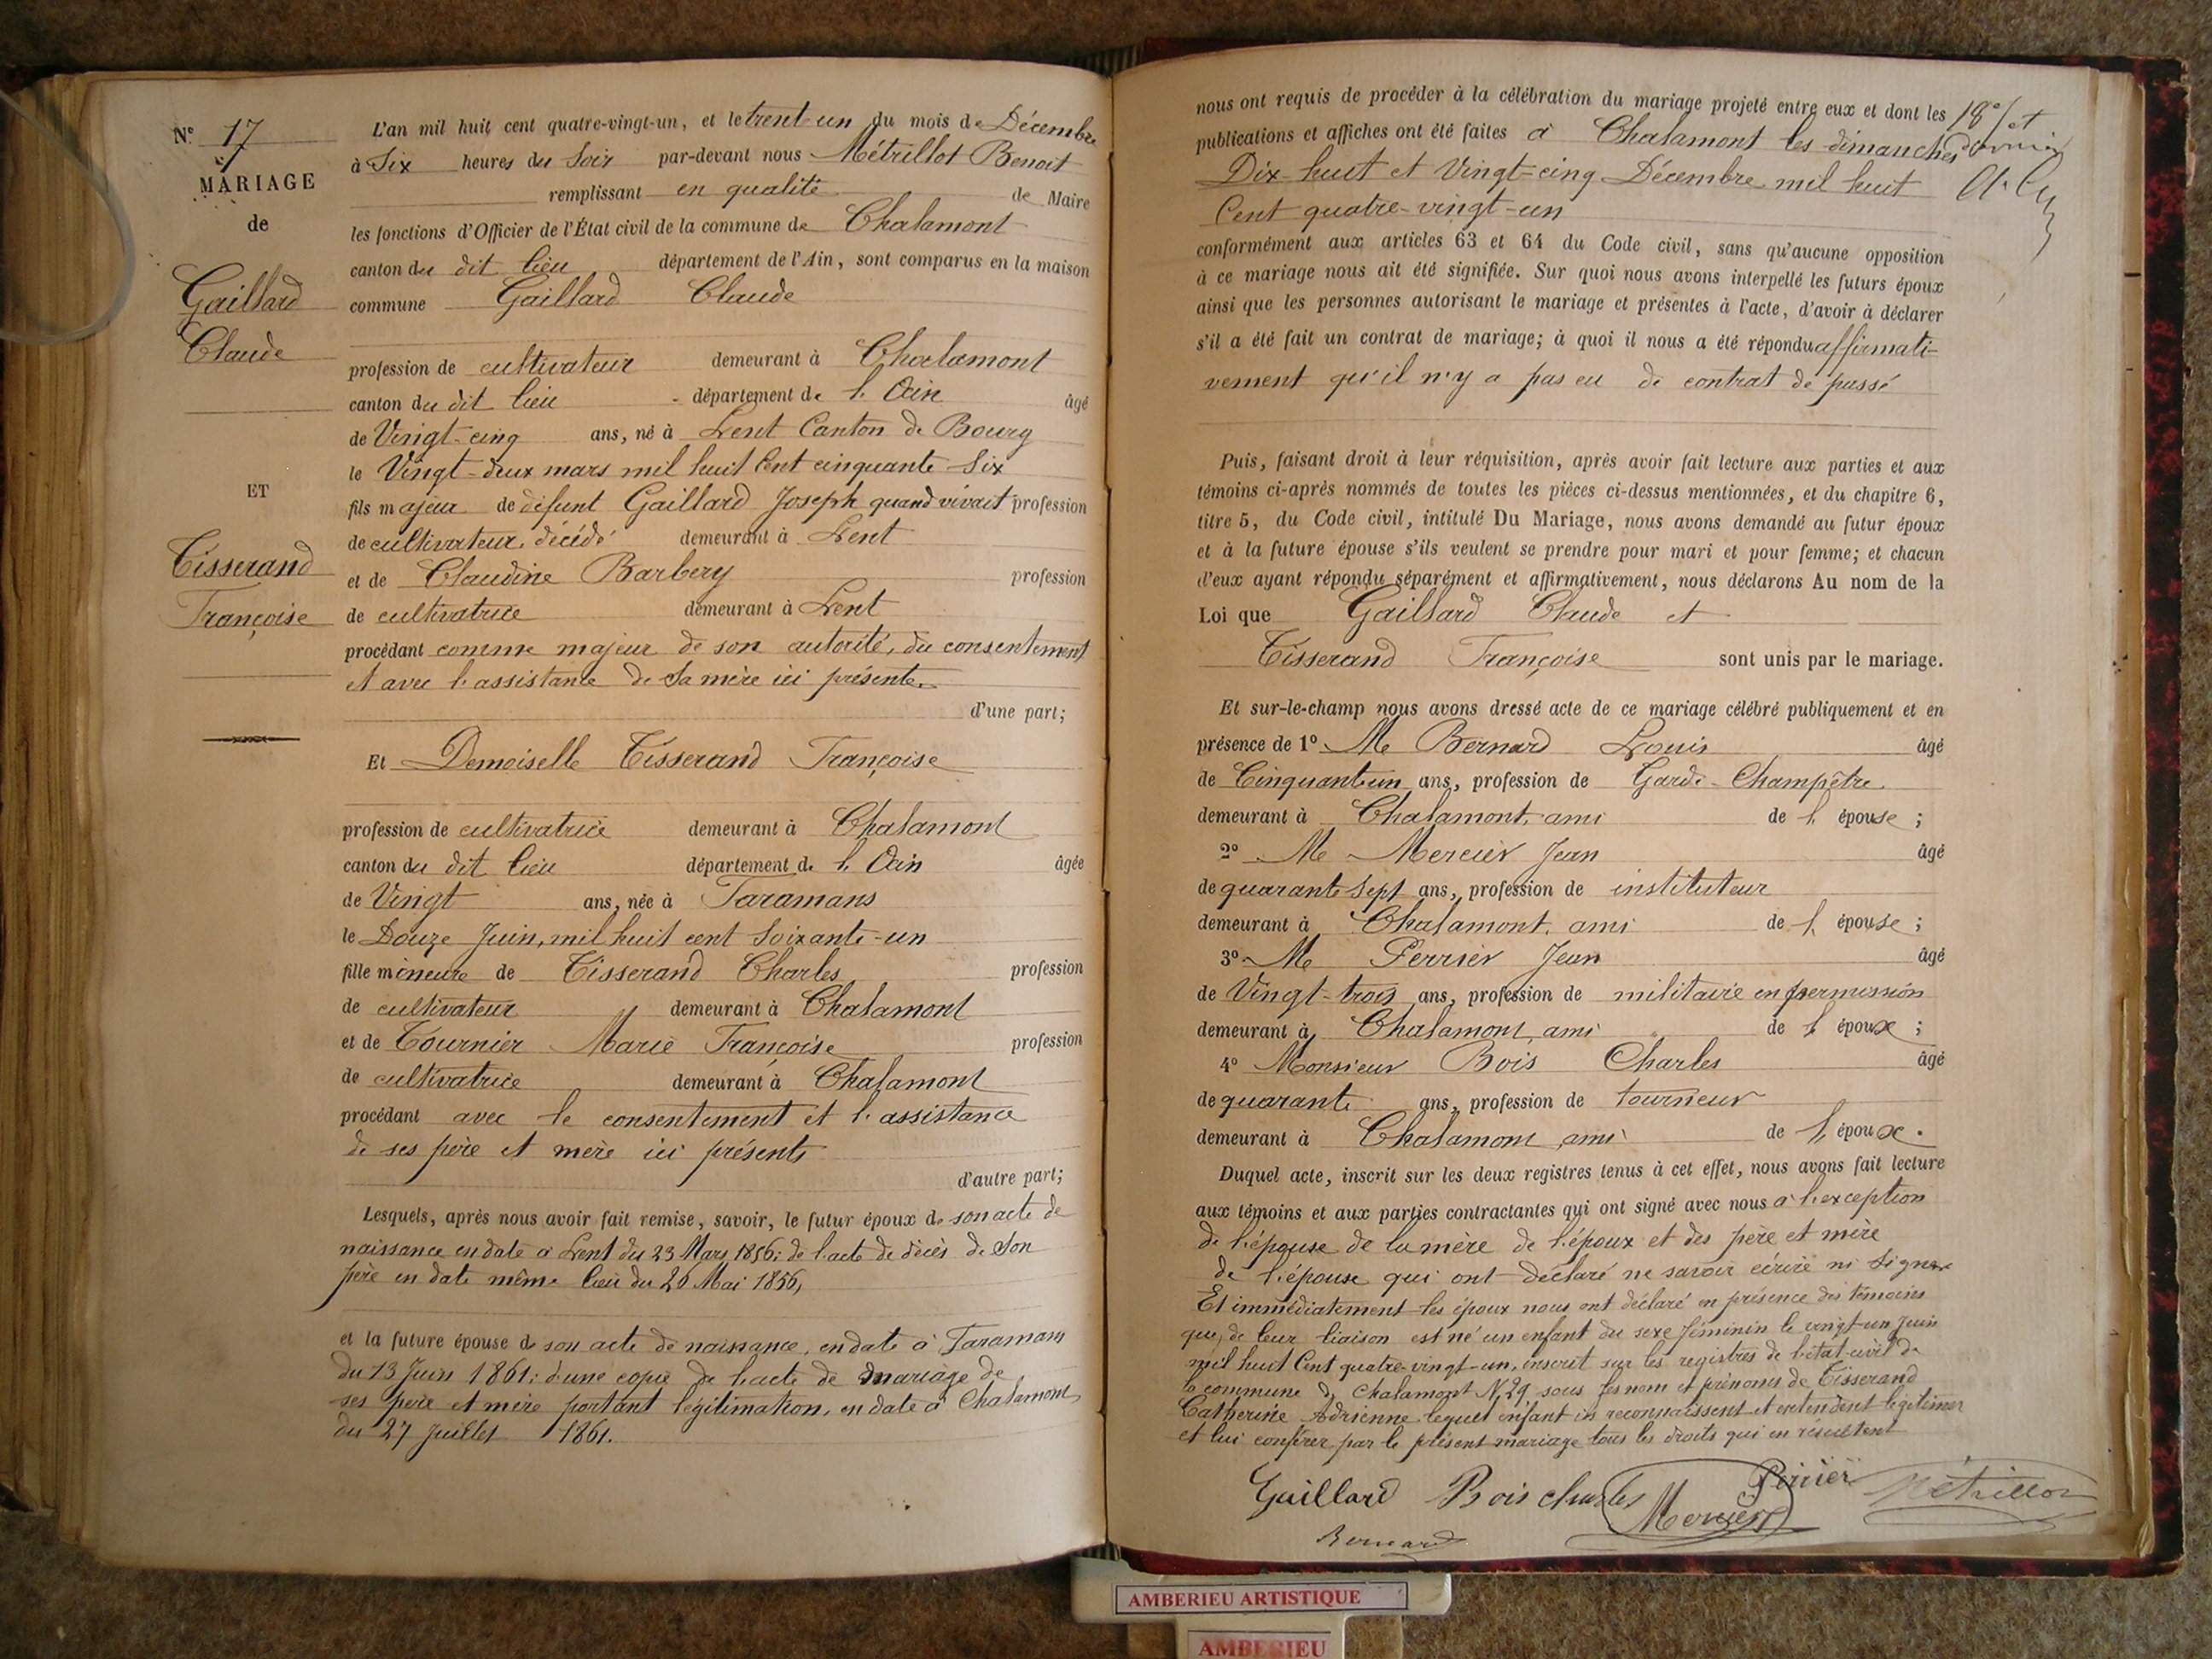 N° 17
MARIAGE
de
Gaillard
Claude
ET
Tisserand
Françoise
L'an mil huit cent quatre-vingt-un, et le trent-un du mois de Décembre
à Six heures du Soir par-devant nous Métrillot Benoit
remplissant en qualité de Maire
les fonctions d'Officier de l'État civil de la commune de Chalamont
canton du dit lieu département de l'Ain, sont comparus en la maison
commune Gaillard Claude
profession de cultivateur demeurant à Chalamont
canton du dit lieu département de l'Ain âgé
de Vingt-cinq ans, né à Lent Canton de Bourg
le Vingt-deux mars mil huit Cent cinquante Six
fils majeur de défunt Gaillard Joseph quand vivait profession
de cultivateur, décédé demeurant à Lent
et de Claudine Barbery profession
de cultivatrice demeurant à Lent
procédant comme majeur de son autorité, du consentement
et avec l'assistance de Sa mère ici présente.
d'une part;
Et Demoiselle Tisserand Françoise
profession de cultivatrice demeurant à Chalamont
canton du dit lieu département de l'Ain âgée
de Vingt ans, née à Faramans
le Douze Juin, mil huit cent Soixante-un
fille mineure de Tisserand Charles profession
de cultivateur demeurant à Chalamont
et de Tournier Marie Françoise profession
de cultivatrice demeurant à Chalamont
procédant avec le consentement et l'assistance
de ses père et mère ici présents
d'autre part;
Lesquels, après nous avoir fait remise, savoir, le futur époux de son acte de
naissance en date à Lent du 23 Mars 1856; de l'acte de décès de Son
père en date même lieu du 26 Mai 1856,
et la future épouse de son acte de naissance, en date à Faramans
du 13 Juin 1861; d'une copie de l'acte de mariage de
ses père et mère portant légitimation, en date à Chalamont
du 27 juillet 1861.
nous ont requis de procéder à la célébration du mariage projeté entre eux et dont les
publications et affiches ont été faites à Chalamont les dimanches
Dix-huit et Vingt-cinq Décembre mil huit
Cent quatre-vingt-un
18 et
conformément aux articles 63 et 64 du Code civil, sans qu'aucune opposition
à ce mariage nous ait été signifiée. Sur quoi nous avons interpellé les futurs époux
ainsi que les personnes autorisant le mariage et présentes à l'acte, d'avoir à déclarer
s'il a été fait un contrat de mariage; à quoi il nous a été répondu affirmati-
vement qu'il n'y a pas eu de contrat de passé
Puis, faisant droit à leur réquisition, après avoir fait lecture aux parties et aux
témoins ci-après nommés de toutes les pièces ci-dessus mentionnées, et du chapitre 6,
titre 5, du Code civil, intitulé Du Mariage, nous avons demandé au futur époux
et à la future épouse s'ils veulent se prendre pour mari et pour femme; et chacun
d'eux ayant répondu séparément et affirmativement, nous déclarons Au nom de la
Loi que Gaillard Claude et
Tisserand Françoise sont unis par le mariage.
Et sur-le-champ nous avons dressé acte de ce mariage célébré publiquement et en
présence de 1° Me Bernard Louis âgé
de Cinquant un ans, profession de Garde-Champêtre
demeurant à Chalamont, ami de l'épouse;
2° Me Mercier Jean âgé
de quarante sept ans, profession de instituteur
demeurant à Chalamont, ami de l'épouse;
3° Me Perrier Jean âgé
de Vingt-trois ans, profession de militaire en permission
demeurant à Chalamont, ami de l'époux;
4° Monsieur Bois Charles âgé
de quarante ans, profession de tourneur
demeurant à Chalamont, ami de l'époux.
Duquel acte, inscrit sur les deux registres tenus à cet effet, nous avons fait lecture
aux témoins et aux parties contractantes qui ont signé avec nous à l'exception
de l'épouse de la mère de l'époux et des père et mère
de l'épouse qui ont déclaré ne savoir écrire ni signer
Et immédiatement les époux nous ont déclaré en présence des témoins
que, de leur liaison est né un enfant du sexe féminin le vingt-un juin
mil huit Cent quatre-vingt-un, inscrit sur les registres de l'état-civil de
la commune de Chalamont N° 29 sous les nom et prénoms de Tisserand
Catherine Adrienne lequel enfant ils reconnaissent et entendent légitimer
et lui conférer par le présent mariage tous les droits qui en résultent
Gaillard Bois charles Mercier Perrier Métrillot
Bernard
AMBERIEU ARTISTIQUE
AMBERIEU